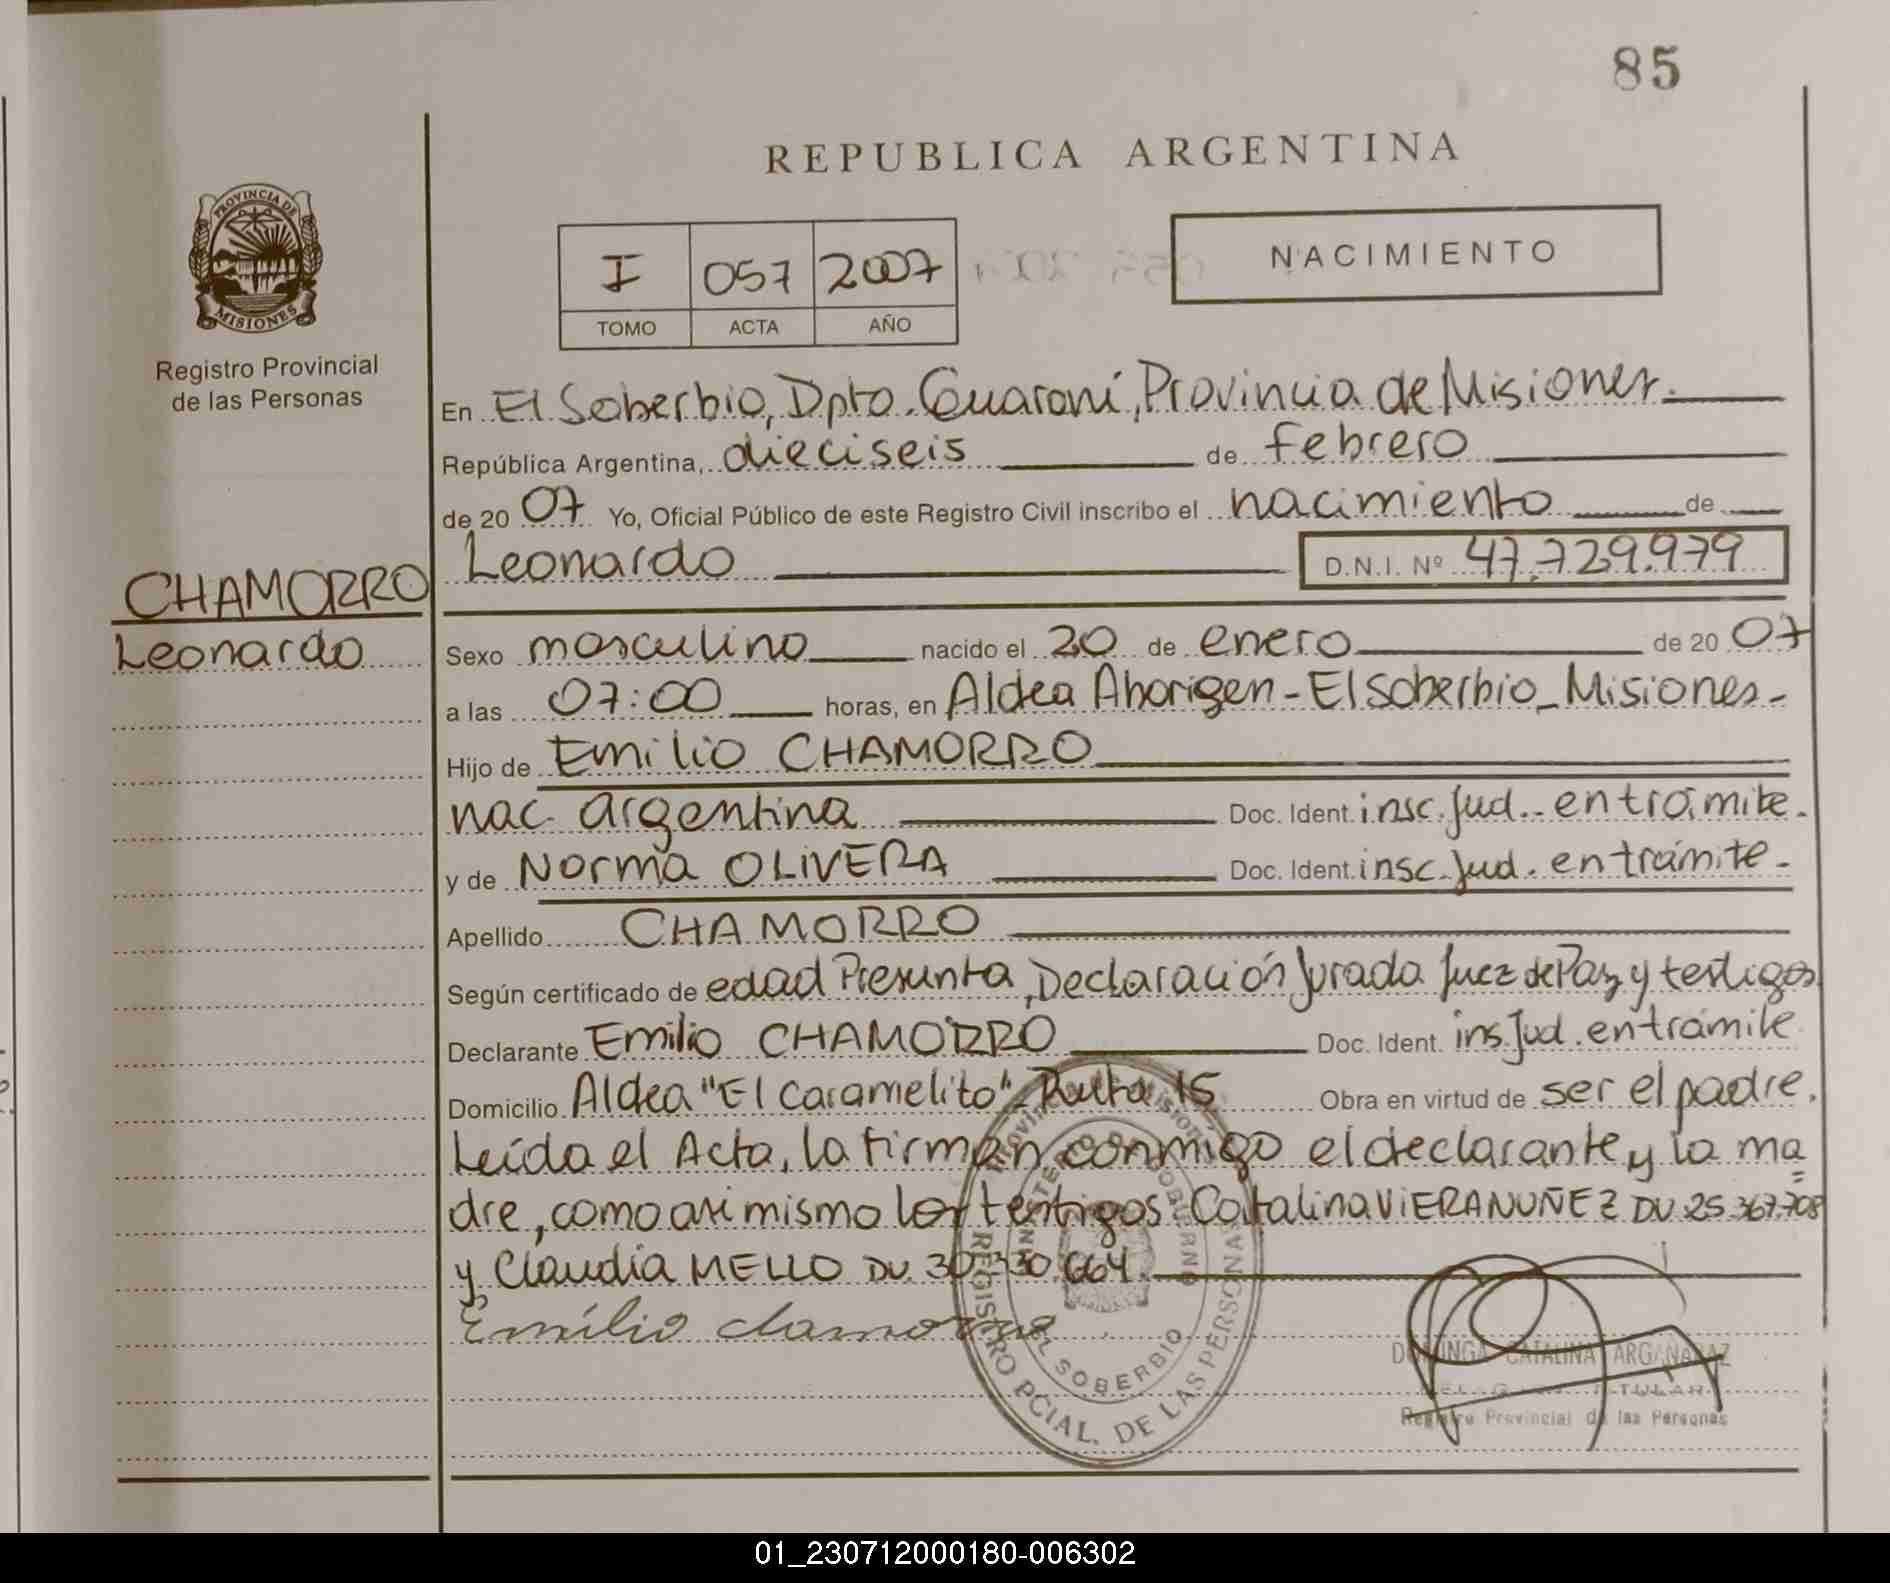 85
REPUBLICA ARGENTINA
PROVINCIA DE
MISIONES
Registro Provincial
de las Personas
I 057 2007
TOMO ACTA AÑO
NACIMIENTO
En El Soberbio, Dpto. Guaraní, Provincia de Misiones.
República Argentina, dieciseis de febrero
de 20 07 Yo, Oficial Público de este Registro Civil inscribo el nacimiento de
Leonardo D.N.I. Nº 47.729.979
CHAMORRO
Leonardo
Sexo masculino nacido el 20 de enero de 20 07
a las 07:00 horas, en Aldea Aborigen - El Soberbio - Misiones -
Hijo de Emilio CHAMORRO
nac. argentina Doc. Ident. insc. Jud. - en trámite.
y de Norma OLIVERA Doc. Ident. insc. Jud. en trámite -
Apellido CHAMORRO
Según certificado de edad Presunta, Declaración Jurada Juez de Paz y testigos
Declarante Emilio CHAMORRO Doc. Ident. ins. Jud. en trámite
Domicilio Aldea "El Caramelito" - Ruta 15 Obra en virtud de ser el padre.
Leída el Acta, la firman conmigo el declarante y la ma
dre, como asi mismo los testigos Catalina VIERA NUÑEZ DU 25.367.708
y Claudia MELLO DU. 30.330.664.
Emílio chamorro
EL SOBERBIO
REGISTRO PCIAL. DE LAS PERSONAS
DOMINGA CATALINA ARGAÑARAZ
Registro Provincial de las Personas
01_230712000180-006302